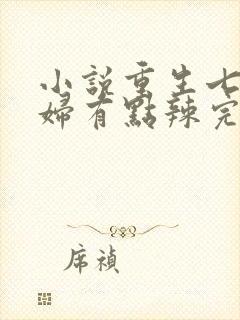 小說重生七
婦有點辣完
席禎